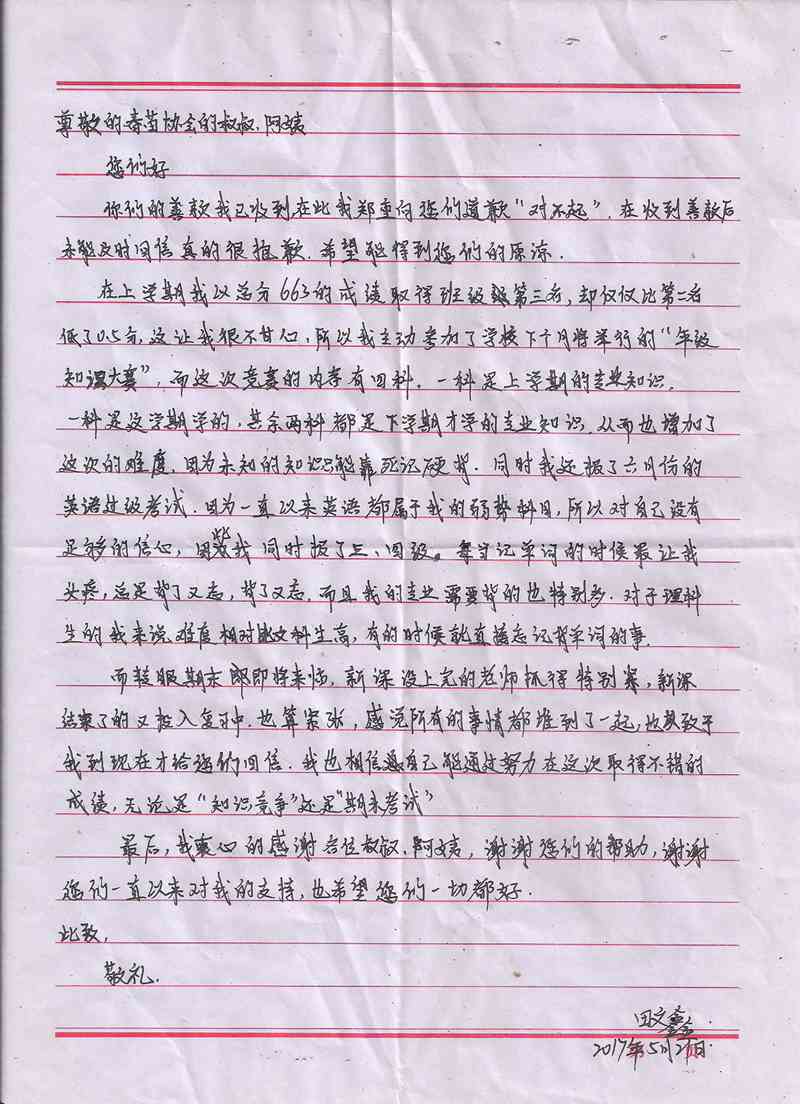 尊敬的春苗协会的叔叔、阿姨
您们好
你们的善款我已收到,在此我郑重向您们道歉"对不起",在收到善款后
未能及时回信真的很抱歉,希望能得到您们的原谅.
在上学期我以总分663的成绩取得班级第三名,却仅仅比第二名
低了0.5分,这让我很不甘心,所以我主动参加了学校下个月将举行的"年级
知识大赛",而这次竞赛的内容有四科,一科是上学期的专业知识,
一科是这学期学的,其余两科都是下学期才学的专业知识,从而也增加了
这次的难度,因为未知的知识只能靠死记硬背.同时我还报了六月份的
英语过级考试.因为一直以来英语都属于我的弱势科目,所以对自己没有
足够的信心,因此我同时报了三、四级。每当记单词的时候最让我
头疼,总是背了又忘,背了又忘,而且我的专业需要背的也特别多.对于理科
生的我来说难度相对比文科生高,有的时候就直接忘记背单词的事.
而期末即将来临,新课没上完的老师抓得特别紧,新课
结束了的又投入复习中.也算紧张,感觉所有的事情都堆到了一起,也导致于
我到现在才给您们回信.我也相信自己能通过努力在这次取得不错的
成绩,无论是"知识竞争"还是"期末考试"
最后,我衷心的感谢各位叔叔、阿姨,谢谢您们的帮助,谢谢
您们一直以来对我的支持,也希望您们一切都好.
此致,
敬礼.
田文鑫.
2017年5月21日.